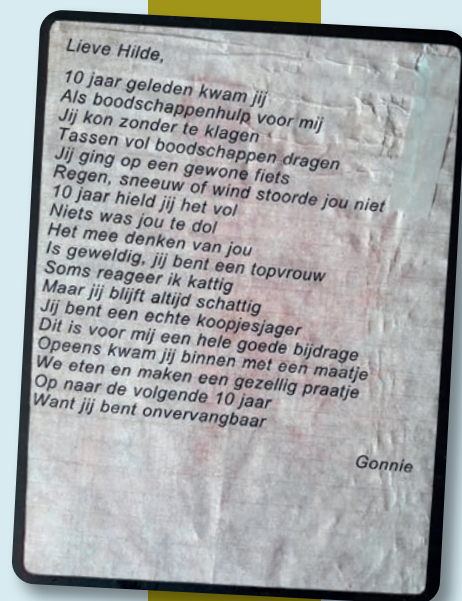 Lieve Hilde,
10 jaar geleden kwam jij
Als boodschappenhulp voor mij
Jij kon zonder te klagen
Tassen vol boodschappen dragen
Jij ging op een gewone fiets
Regen, sneeuw of wind stoorde jou niet
10 jaar hield jij het vol
Niets was jou te dol
Het mee denken van jou
Is geweldig, jij bent een topvrouw
Soms reageer ik kattig
Maar jij blijft altijd schattig
Jij bent een echte koopjesjager
Dit is voor mij een hele goede bijdrage
Opeens kwam jij binnen met een maatje
We eten en maken een gezellig praatje
Op naar de volgende 10 jaar
Want jij bent onvervangbaar
Gonnie